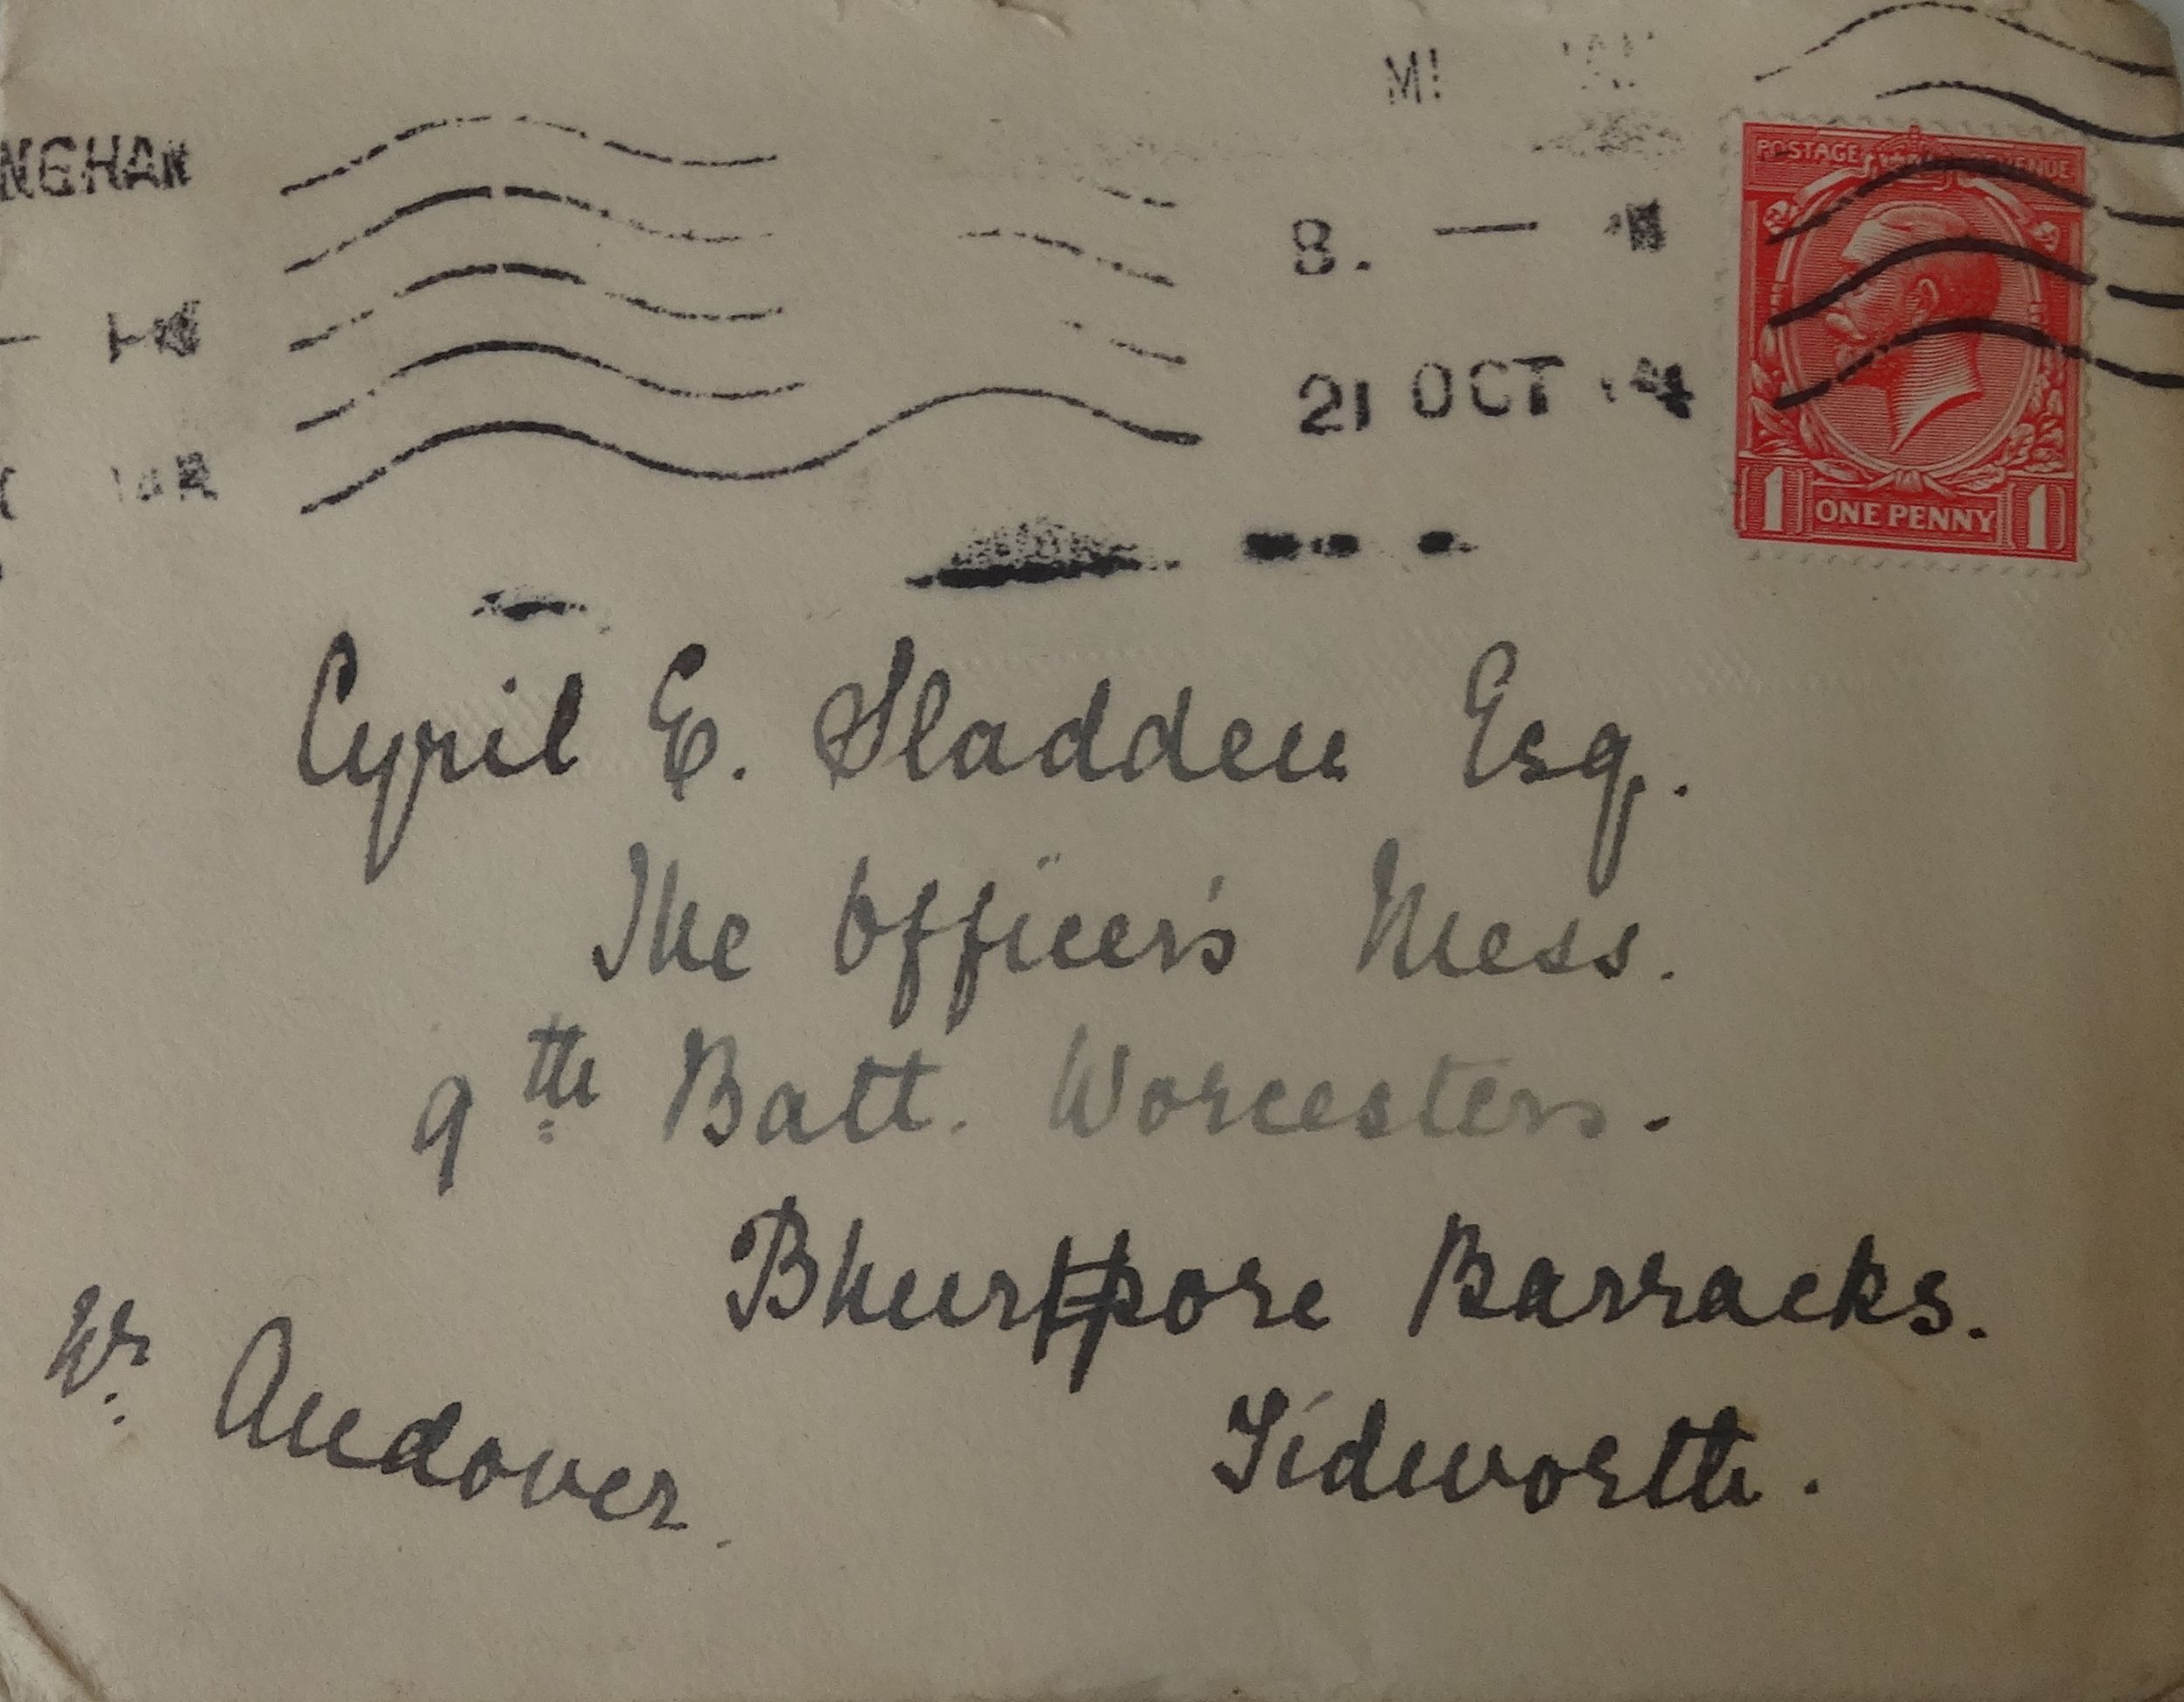 NGHAM
8. —
21 OCT 14
POSTAGE REVENUE
1 ONE PENNY 1
Cyril E. Sladden Esq.
The Officer's Mess.
9th Batt. Worcesters.
Bhurtpore Barracks.
Tidworth.
Nr. Andover.